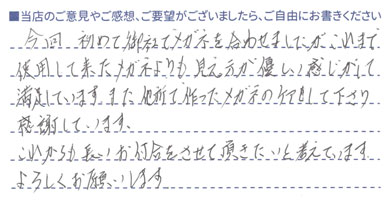 ■当店のご意見やご感想、ご要望がございましたら、ご自由にお書きください
今回 初めて御社でメガネを合わせましたが、これまで
使用して来たメガネよりも見え方が優しい感じがして
満足しています。また他所で作ったメガネのケアもして下さり
感謝しています。
これからも長いお付合をさせて頂きたいと考えています
よろしくお願いします